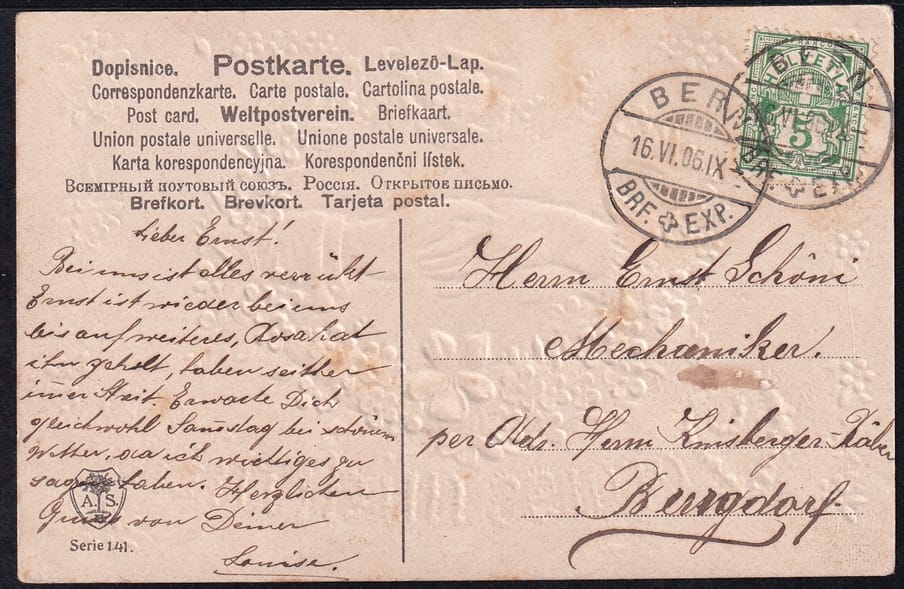 Dopisnice. Postkarte. Levelezō-Lap.
Correspondenzkarte. Carte postale. Cartolina postale.
Post card. Weltpostverein. Briefkaart.
Union postale universelle. Unione postale universale.
Karta korespondencyjna. Korespondenčni lístek.
Всемірный поутовый союзъ. Россія. Открытое письмо.
Brefkort. Brevkort. Tarjeta postal.
HELVETIA
FRANCO
5
BERN
16.VI.06.IX
BRF. EXP.
BERN
BRF. EXP.
Lieber Ernst!
Bei uns ist alles verrükt
Ernst ist wieder bei uns
bis auf weiteres, Rosa hat
ihn geholt, haben seither
imer Streit. Erwarte Dich
gleichwohl Samstag bei schönem
Wetter, da ich wichtiges zu
sagen haben. Herzlichen
Gruss von Deiner
Louise.
A. S.
Serie 141.
Herrn Ernst Schöni
Mechaniker.
per Adr. Herrn
Burgdorf.